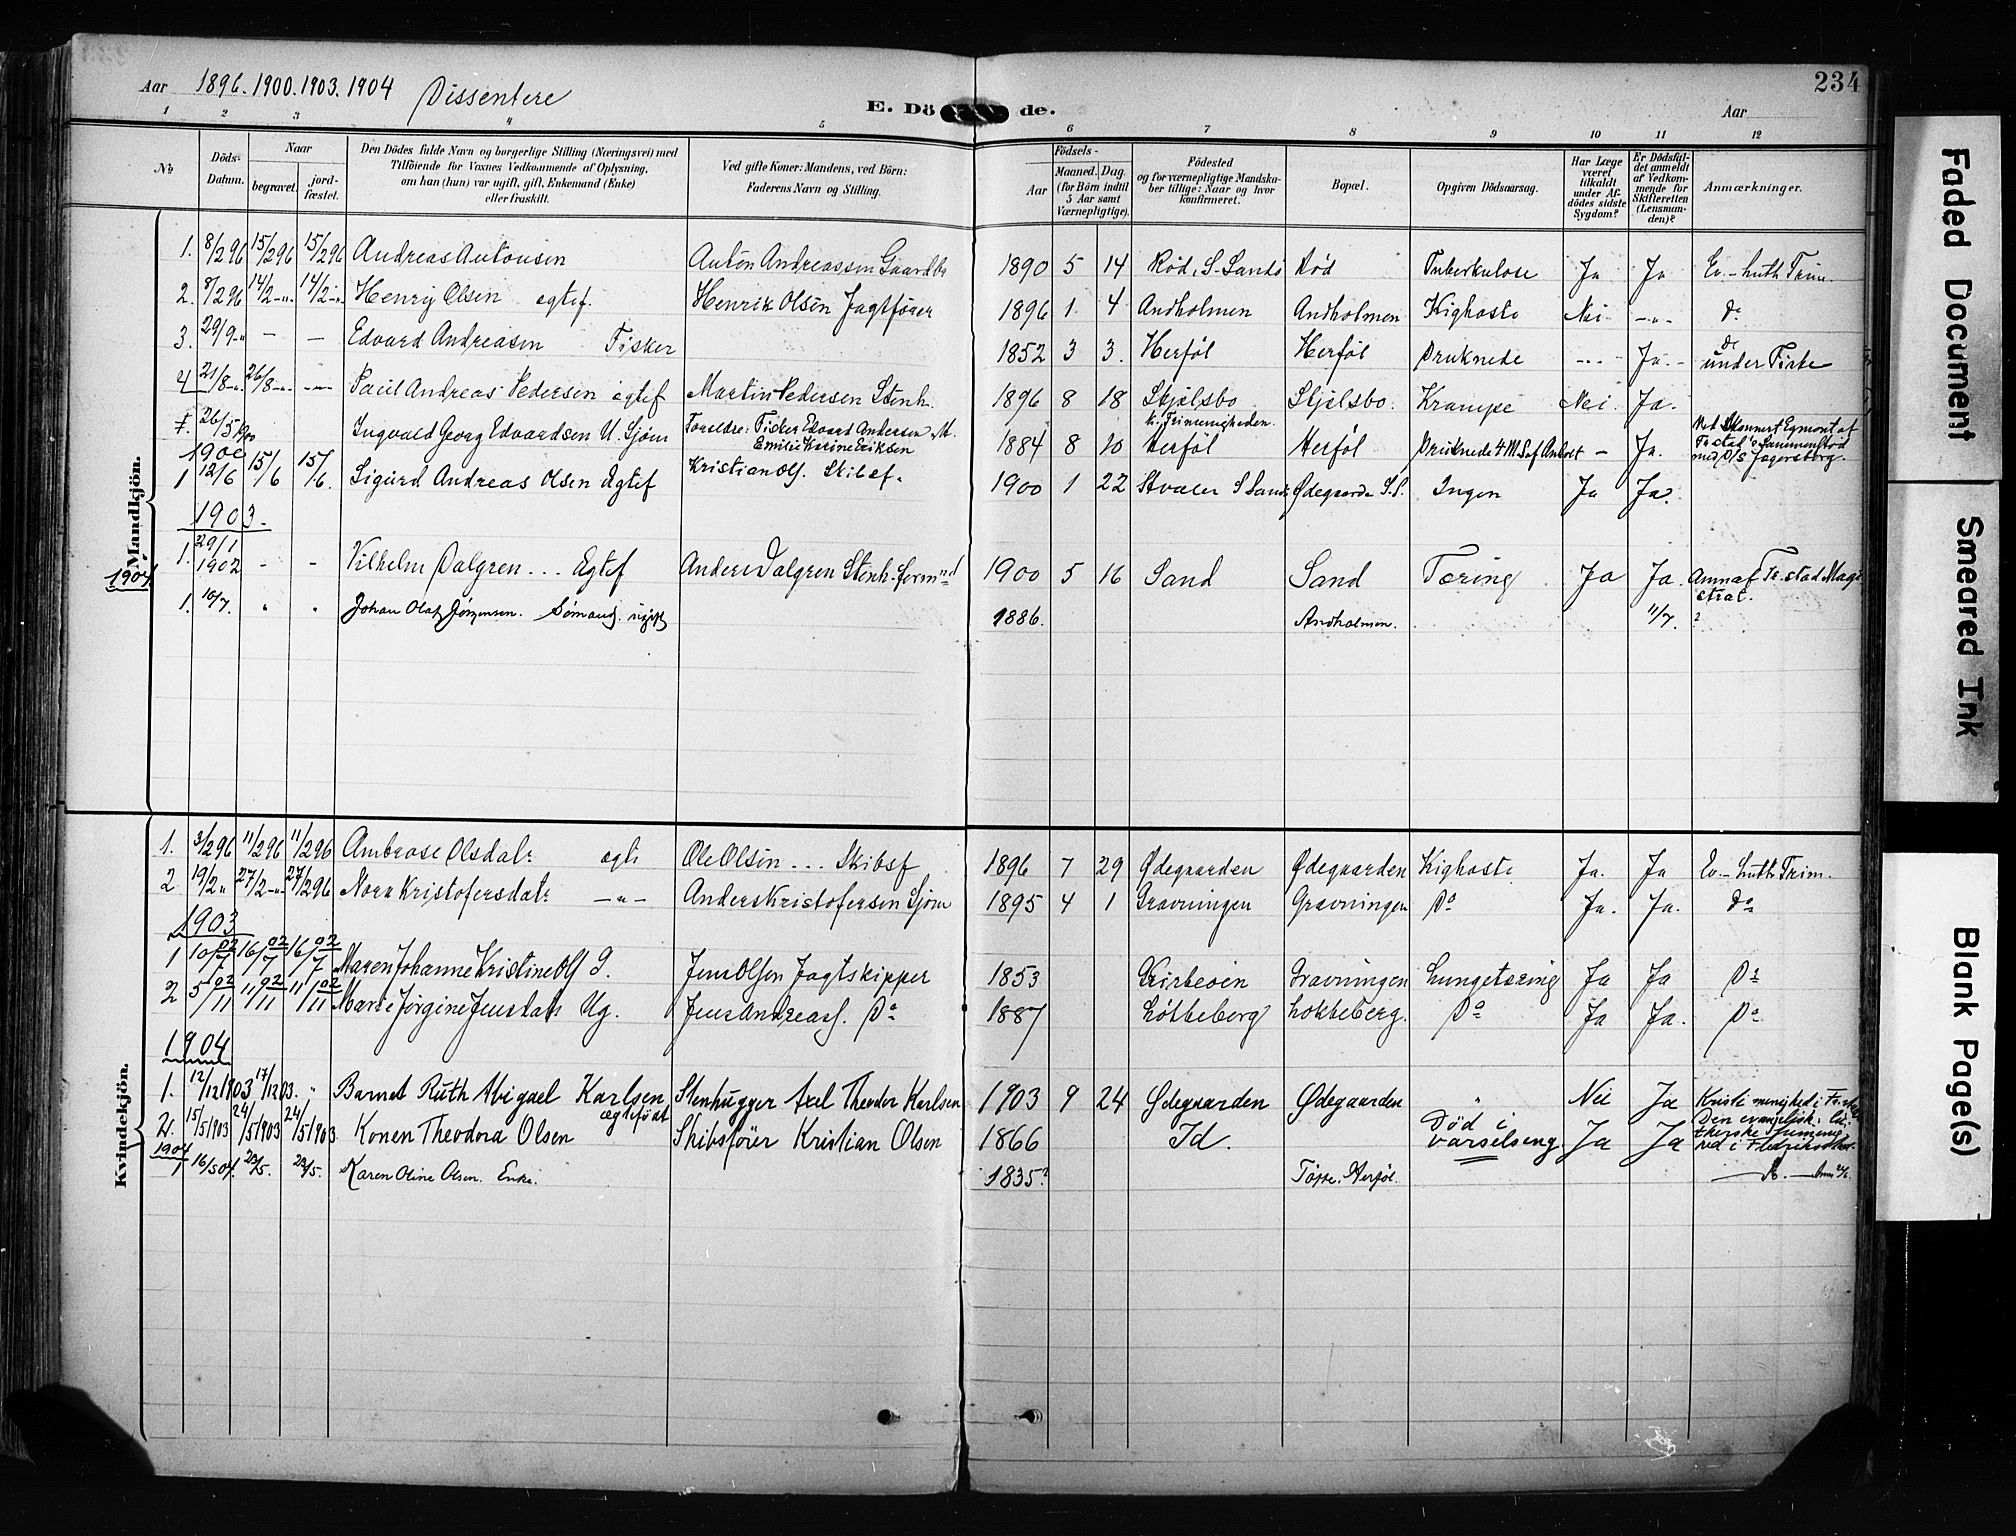 234
Aar 1896. 1900. 1903. 1904 Dissentere
E. Dö de.
Aar
1 2 3 4 5 6 7 8 9 10 11 12
No.
Döds-Datum.
Naar
begravet.
jord-fæstet.
Den Dödes fulde Navn og borgerlige Stilling (Næringsvei) med
Tilföiende for Voxnes Vedkommende af Oplysning,
om han (hun) var ugift, gift, Enkemand (Enke)
eller fraskilt.
Ved gifte Koner: Mandens, ved Börn:
Faderens Navn og Stilling.
Födsels-
Aar
Maaned. Dag.
(for Börn indtil
5 Aar samt
Værnepligtige).
Födested
og for værnepligtige Mandska-
ber tillige: Naar og hvor
konfirmeret.
Bopæl.
Opgiven Dödsaarsag.
Har Læge
været
tilkaldt
under Af-
dödes sidste
Sygdom?
Er Dödsfal-
det anmeldt
af Vedkom-
mende for
Skifteretten
(Lensman-
den)?
Anmærkninger.
Mandkjön.
1. 8/2 96 15/2 96 15/2 96 Andreas Antonsen Anton Andreassen Gaardbr 1890 5 14 Rød, S. Sandø Rød Tuberkulose Ja Ja Ev.-luth Frim.
2. 8/2 96 14/2 -"- 14/2 -"- Henry Olsen egtef. Henrik Olsen Jagtfører 1896 1 4 Andholmen Andholmen Kighoste Nei -"- do
3. 29/9 -"- - - Edvard Andreasen Fisker 1852 3 3. Herføl Herføl Druknede --- Ja.- do under Fiske
4 21/8 -"- 26/8 -"- -"- Paul Andreas Pedersen egtef Martin Pedersen Stenh. 1896 8 18 Skjelsbo Skjelsbo. Krampe Nei. Ja.
26/5 1900 Ingvald Georg Edvardsen U. Sjøm Foreldre: Fisker Edvard Andersen .M. Emilie Karine Eriksen 1884 8 10 k. i Frimenigheden. Herføl Herføl Druknede 4 M S af Anholt - Ja. Ved Skonnert Egmont af Fr.stad's Sammenstød med D/S Jagersborg.
1900
1 12/6 15/6 15/6. Sigurd Andreas Olsen Egtef Kristian Ols. Skibsf. 1900 1 22 Hvaler S Sandø Ødegaarde S.S. Ingen Ja Ja.
1903.
1. 29/1 1902 - - Vilhelm Dalgren ... Egtef Anders Dalgren Stenh.formnd 1900 5 16 Sand Sand Tæring Ja Ja. Anm af Fr.stad Magistrat.
1904
1. 10/7. " " Johan Olaf Jørgensen. Sømand. ugift 1886. Andholmen. 11/7. ?
Kvindekjön.
1. 3/2 96 11/2 96 11/2 96 Ambrose Olsdatr egte Ole Olsen ... Skibsf 1896 7 29 Ødegaarden Ødegaarden Kighoste Ja. Ja Ev.-luth Frim.
2 19/2 " 27/2 -"- 27/2 96 Nora Kristofersdatr -"- Anders Kristofersen Sjøm 1895 4 1 Gravningen Gravningen Do Ja. Ja. do
1903
1 10/7 02 16/7 02 16/7 02 Maren Johanne Kristine Ols G. Jens Olsen Jagtskipper 1853 Kirkeøen Gravningen Lungetæring Ja Ja Do
2 5/11 02 11/11 02 11/11 02 Marie Jørgine Jensdatr Ug. Jens Andreass. Do 1887 Løkkeberg Lokkeberg. Do Ja Ja. Do
1904
1. 12/12 1903 17/12 03. " Barnet Ruth Abigael Karlsen ægtefødt Stenhugger Axel Theodor Karlsen 1903 9 24 Ødegaarden Ødegaarden " Nei Ja Kristi menighed i Fr.stad
2. 15/5 1903 24/5 1903 24/5 1903 Konen Theodora Olsen Skibsfører Kristian Olsen 1866 Id. Død i varselseng Ja Ja Den evangelisk. lutherske Frimenighed i Fredriksstad
1904
1 16/5 04. 23/5. 23/5. Karen Oline Olsen. Enke. 1835? Tøsse. Herføl. — do. —
Faded Document
Smeared Ink
Blank Page(s)